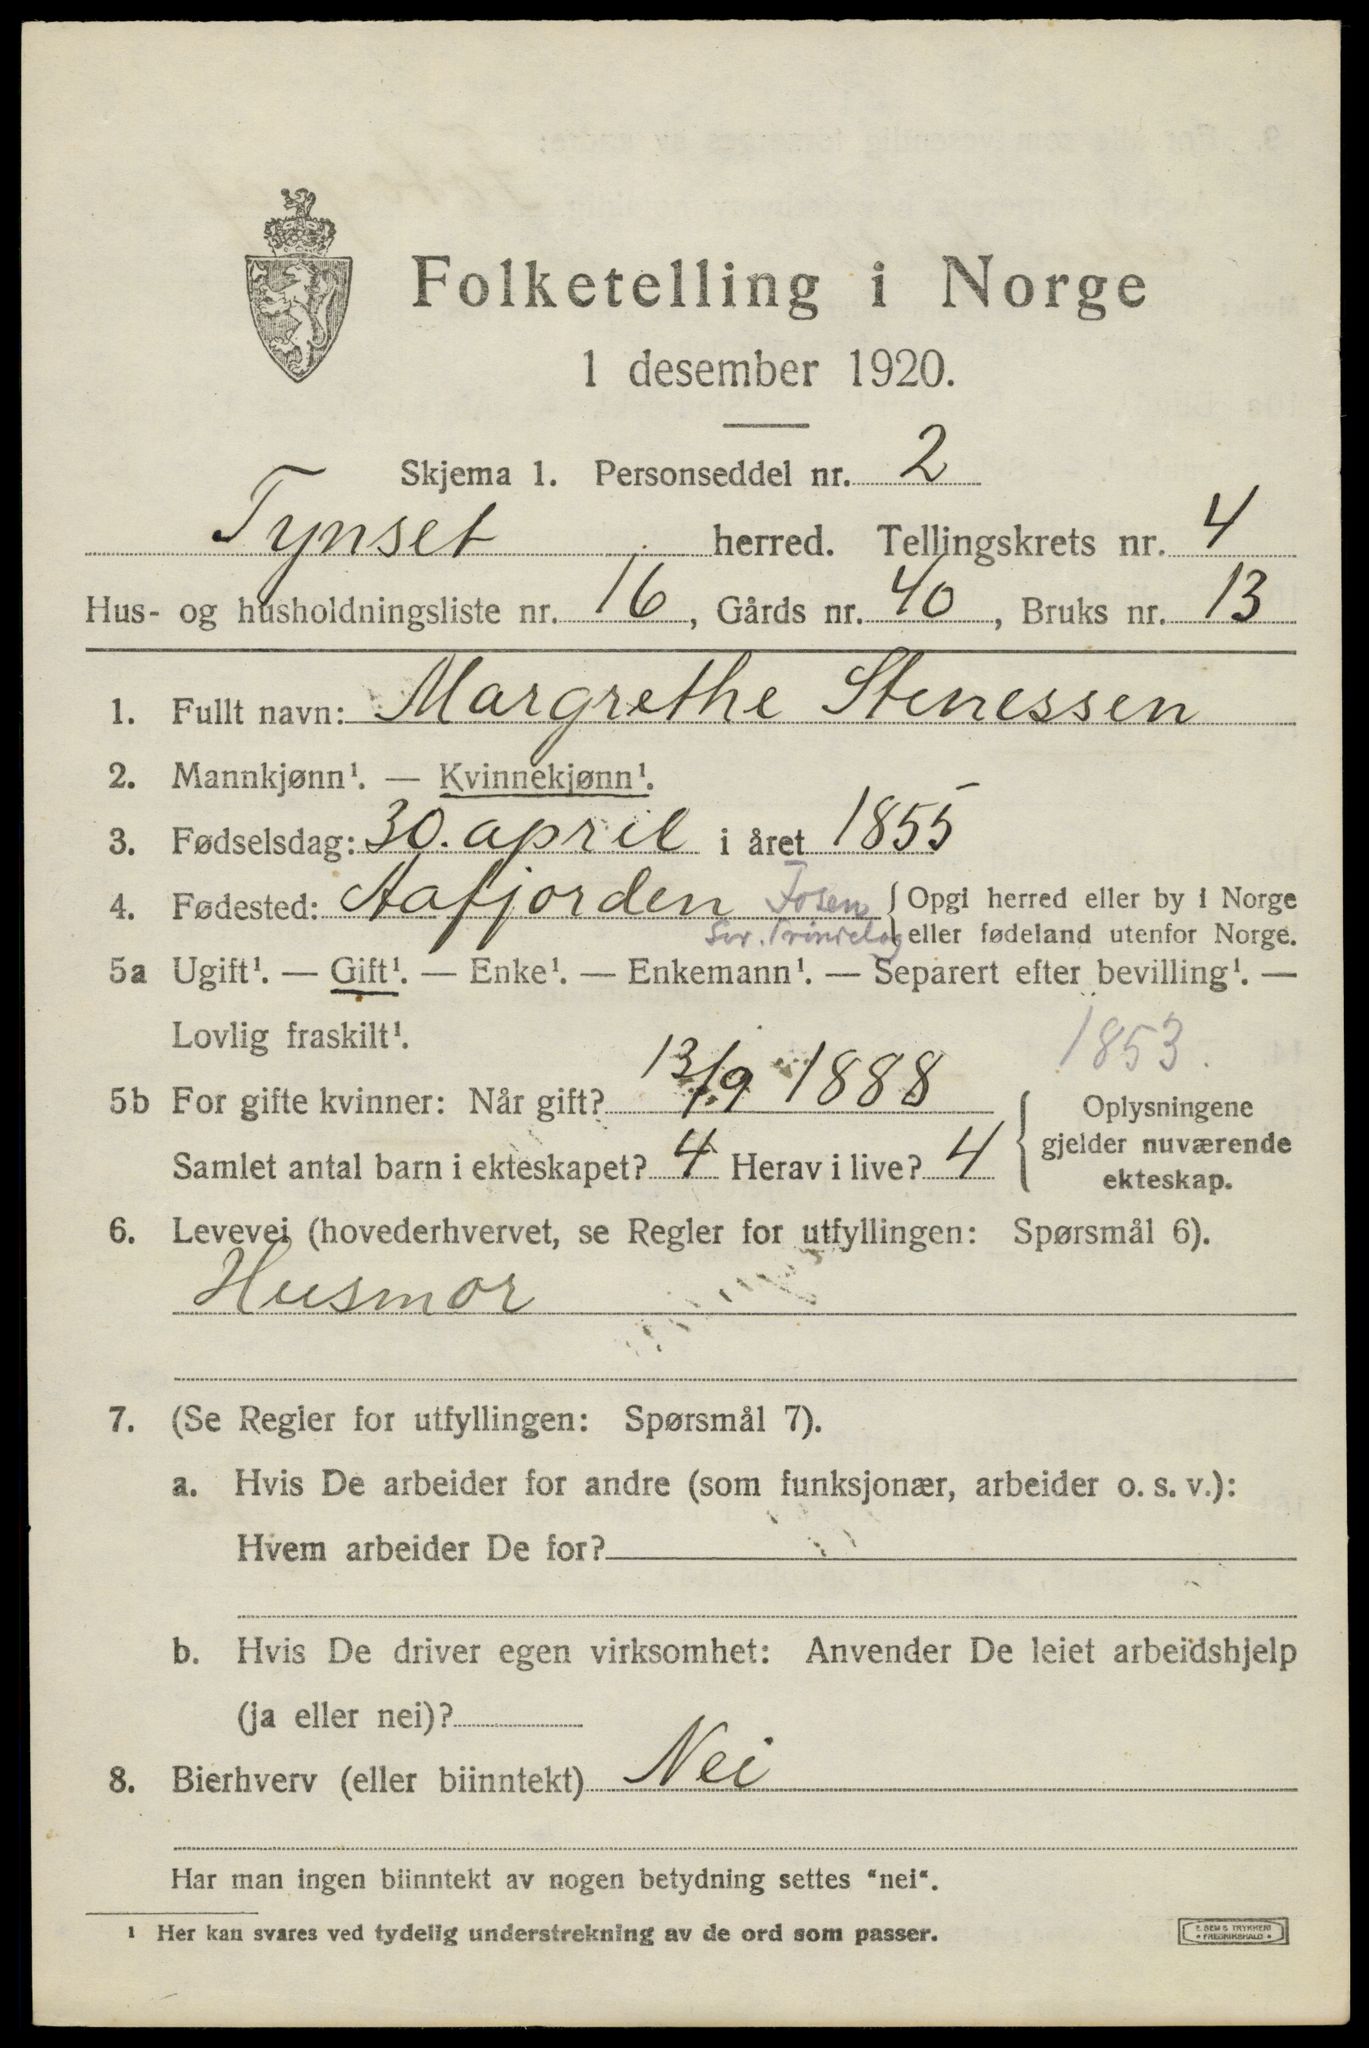 Folketelling i Norge
1 desember 1920.
Skjema 1. Personseddel nr. 2
Tynset herred. Tellingskrets nr. 4
Hus- og husholdningsliste nr. 16, Gårds nr. 40, Bruks nr. 13
1. Fullt navn: Margrethe Stenessen
2. Mannkjønn¹. — Kvinnekjønn¹.
3. Fødselsdag: 30. april i året 1855
4. Fødested: Aafjorden Fosen { Opgi herred eller by i Norge
eller fødeland utenfor Norge.
5a Ugift¹. — Gift¹. — Enke¹. — Enkemann¹. — Separert efter bevilling¹. —
Lovlig fraskilt¹.
1853.
5b For gifte kvinner: Når gift? 13/9 1888
Samlet antal barn i ekteskapet? 4 Herav i live? 4
{ Oplysningene
gjelder nuværende
ekteskap.
6. Levevei (hovederhvervet, se Regler for utfyllingen: Spørsmål 6).
Husmor
7. (Se Regler for utfyllingen: Spørsmål 7).
a. Hvis De arbeider for andre (som funksjonær, arbeider o. s. v.):
Hvem arbeider De for?
b. Hvis De driver egen virksomhet: Anvender De leiet arbeidshjelp
(ja eller nei)?
8. Bierhverv (eller biinntekt) Nei
Har man ingen biinntekt av nogen betydning settes "nei".
¹ Her kan svares ved tydelig understrekning av de ord som passer.
E. SEM'S TRYKKERI
• FREDRIKSHALD •